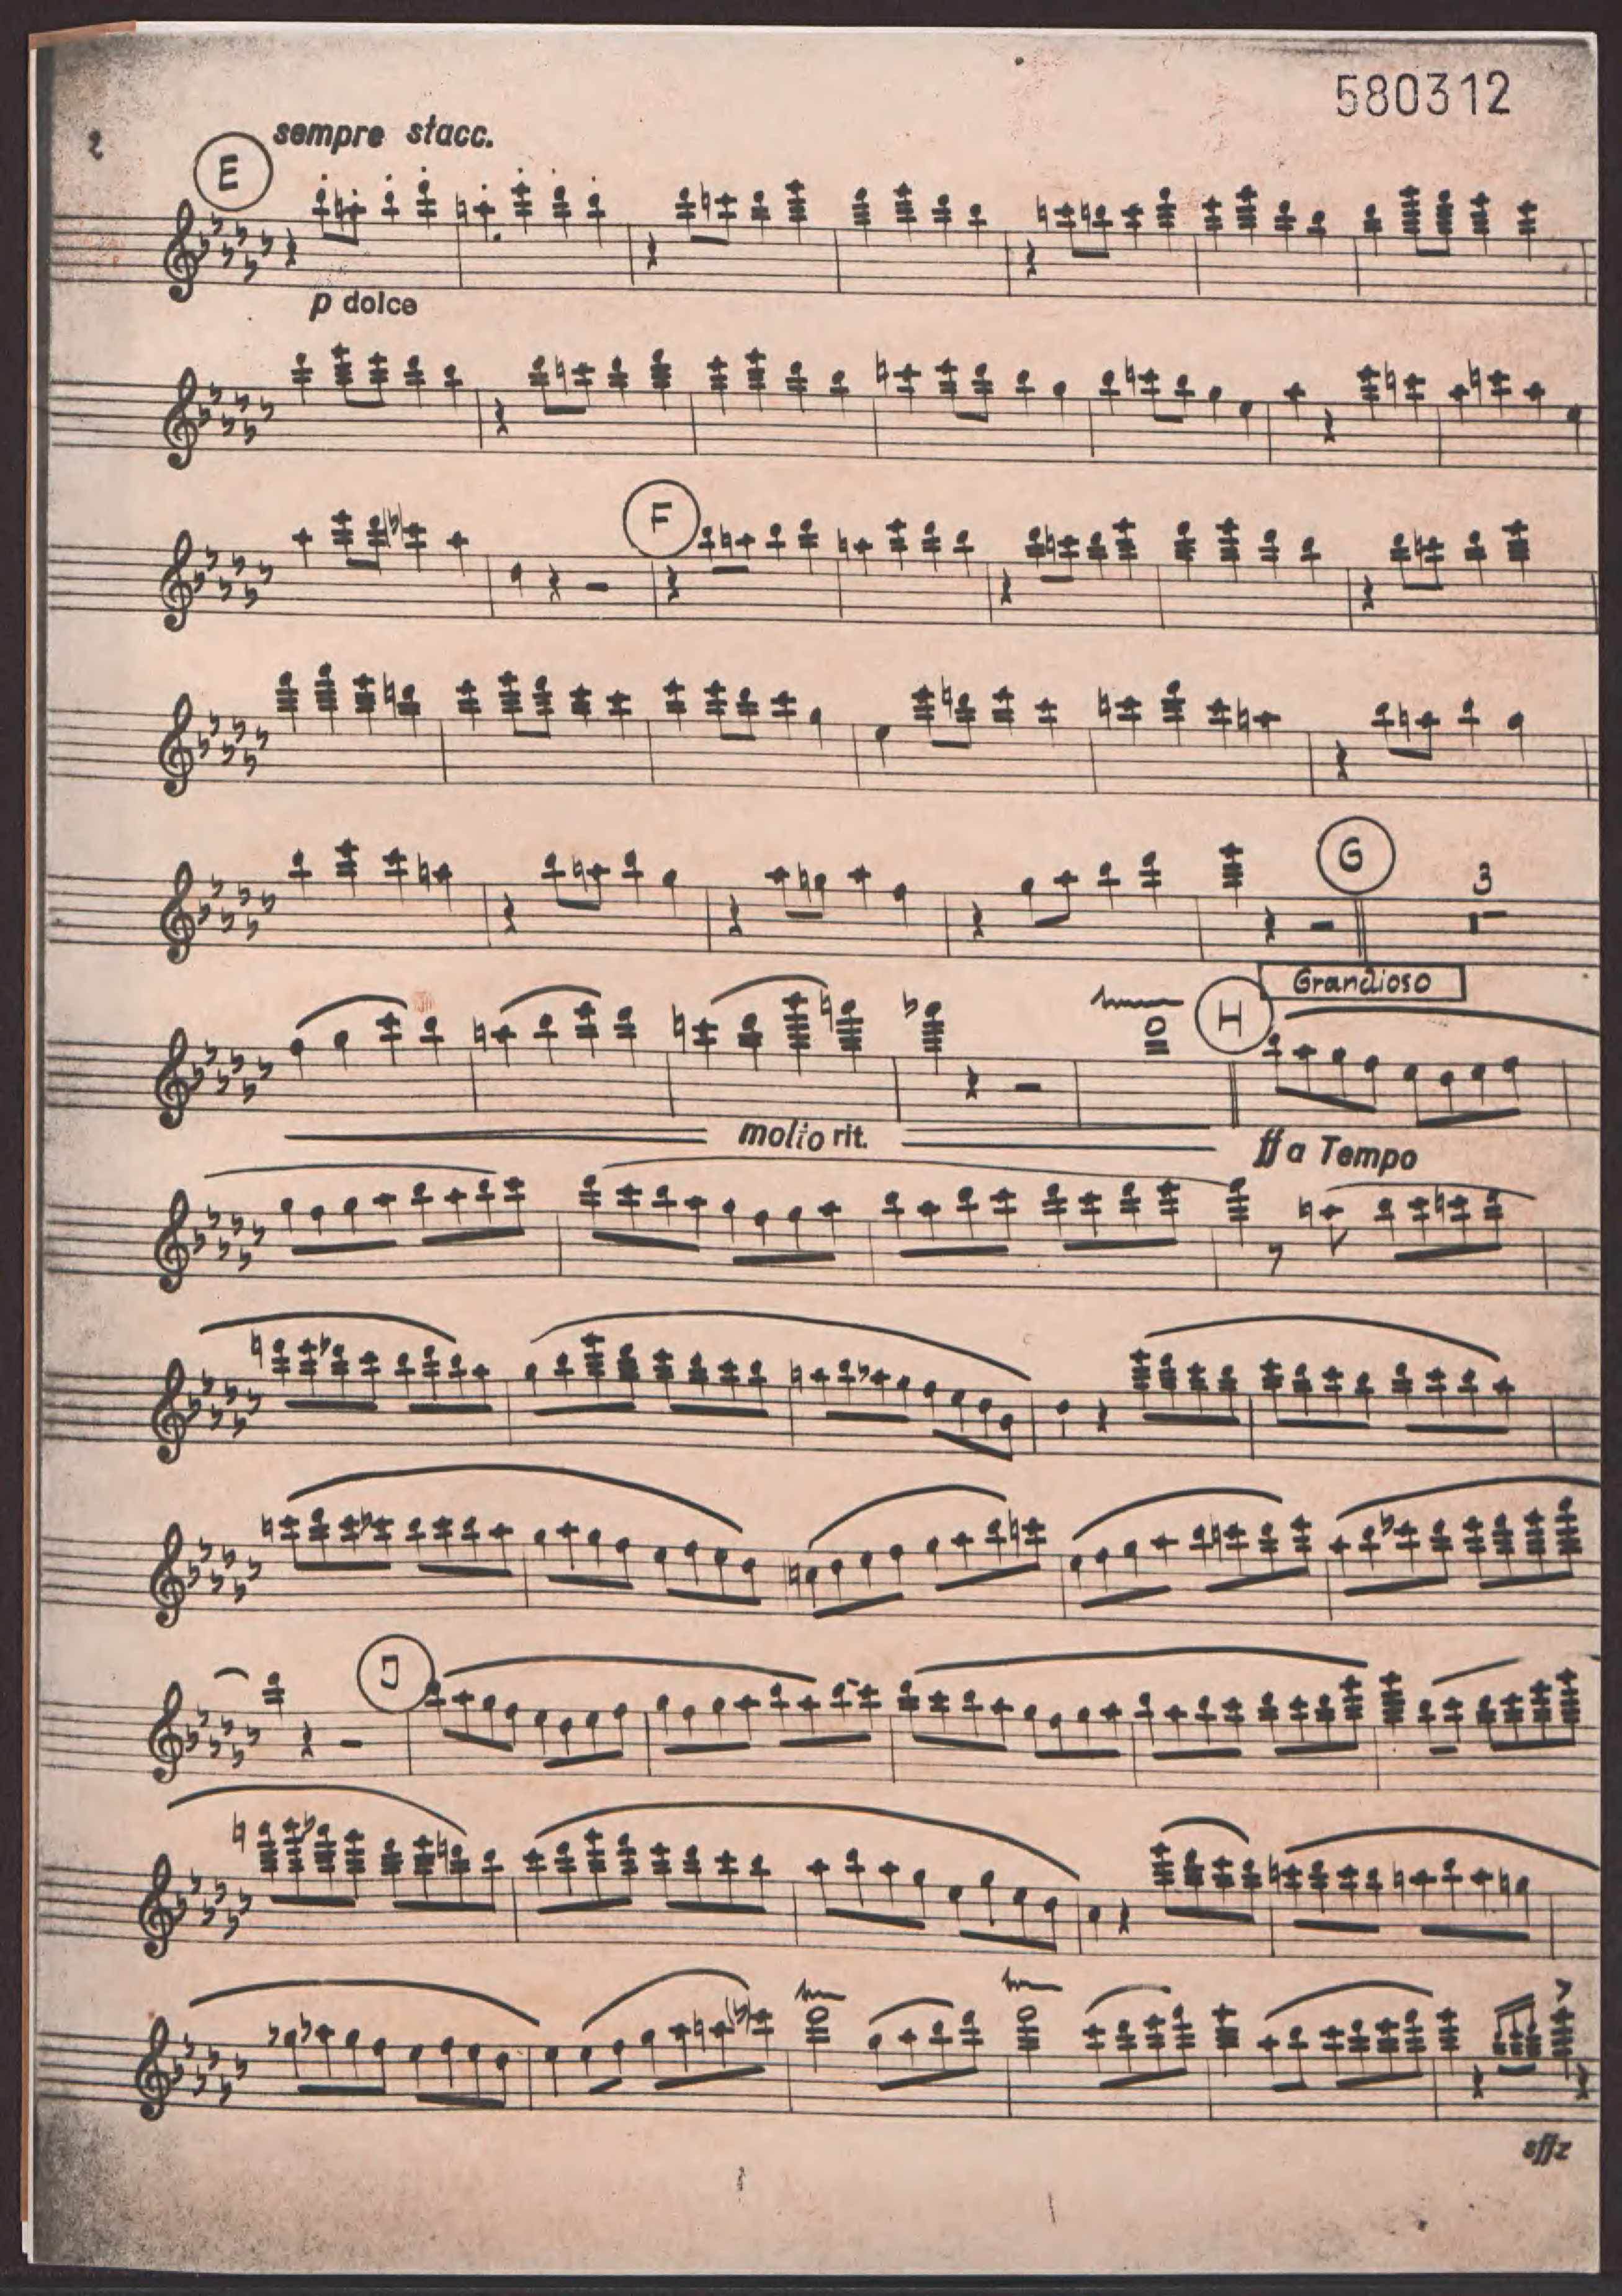 580312
2
sempre stacc.
E
p dolce
F
G
3
Grandioso
H
molto rit.
ff a Tempo
J
sffz